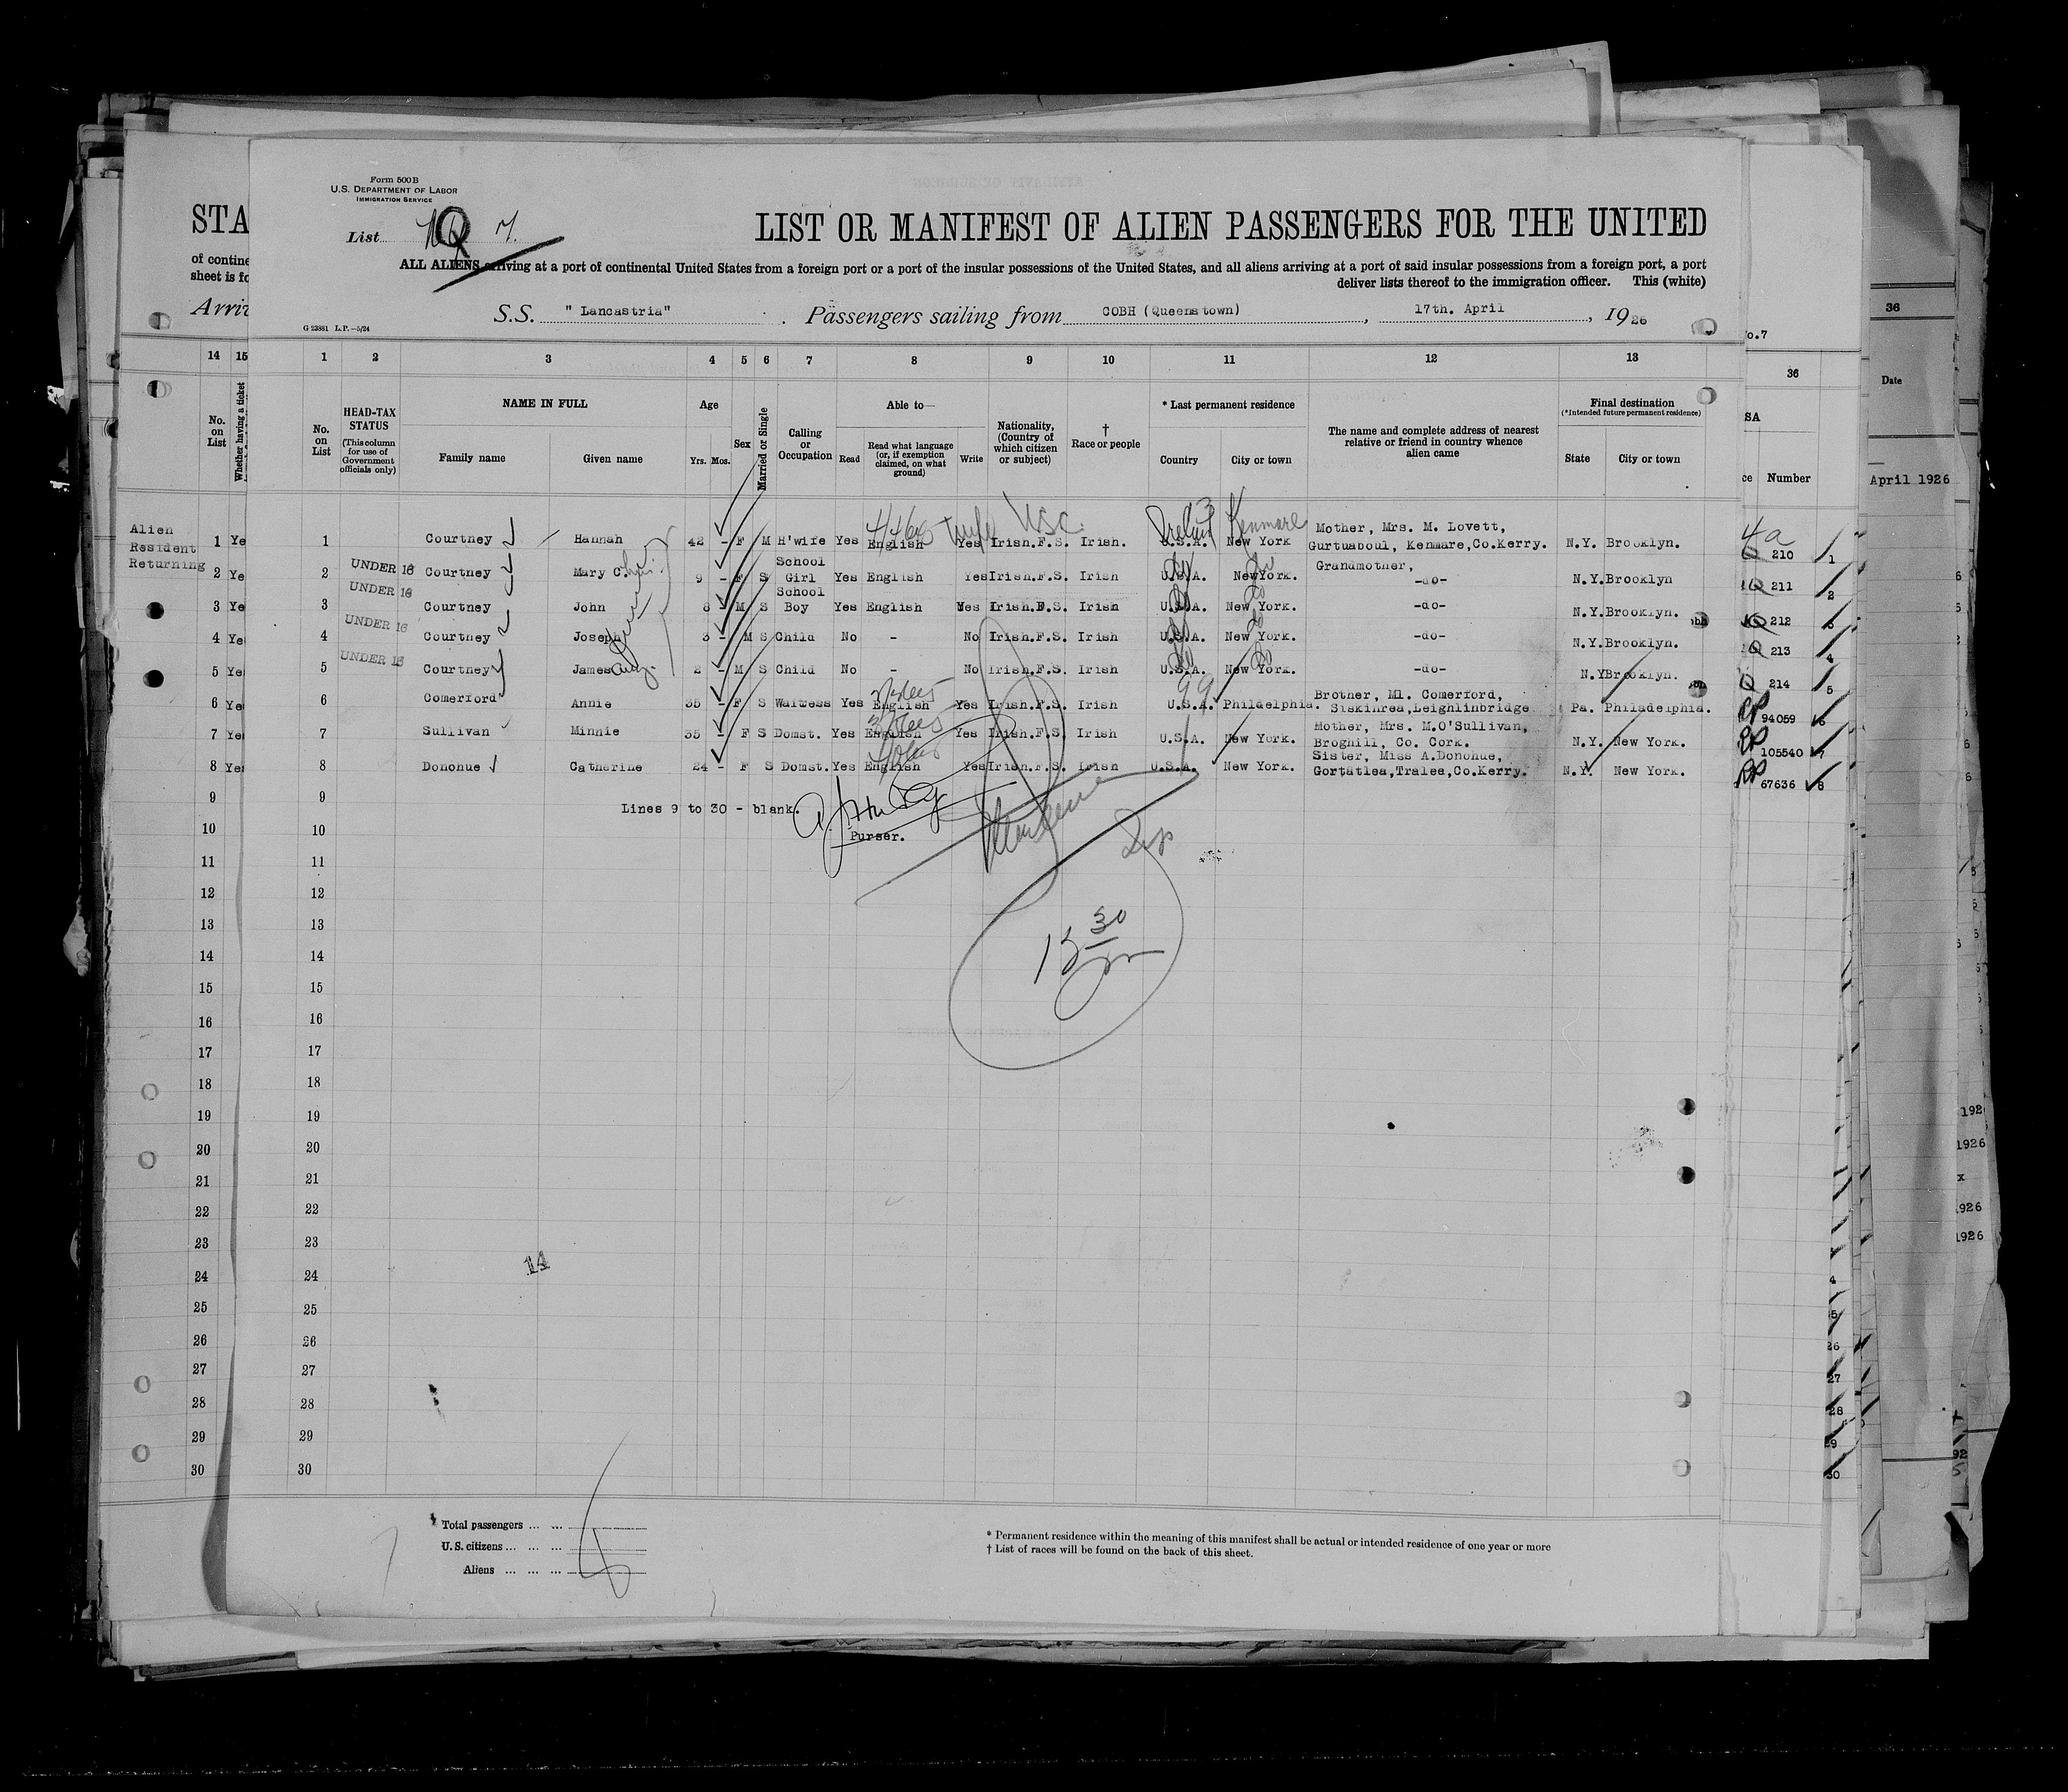 Form 500B
U.S. DEPARTMENT OF LABOR
IMMIGRATION SERVICE
List
LIST OR MANIFEST OF ALIEN PASSENGERS FOR THE UNITED
STA
ALL ALIENS arriving at a port of continental United States from a foreign port or a port of the insular possessions of the United States, and all aliens arriving at a port of said insular possessions from a foreign port, a port
deliver lists thereof to the immigration officer. This (white)
of contine
sheet is fo
S.S. "Lancastria" . Passengers sailing from COBH (Queenstown) , 17th. April , 1926
G 23881 L.P.—5/24
o.7
36
14 15 1 2 3 4 5 6 7 8 9 10 11 12 13 36
Date
No. on List
Whether having a ticket
No. on List
HEAD-TAX STATUS
(This column for use of Government officials only)
NAME IN FULL
Family name
Given name
Age
Yrs. Mos.
Sex
Married or Single
Calling or Occupation
Able to—
Read
Read what language (or, if exemption claimed, on what ground)
Write
Nationality, (Country of which citizen or subject)
† Race or people
* Last permanent residence
Country
City or town
The name and complete address of nearest relative or friend in country whence alien came
Final destination
(*Intended future permanent residence)
State
City or town
SA
ce Number
April 1926
Alien
Resident
Returning
Ireland Kenmare
USC.
4a
1 Ye 1 Courtney Hannah 42 - F M H'wife Yes English Yes Irish.F.S. Irish. U.S.A. New York Mother, Mrs. M. Lovett, Gurtuaboul, Kenmare,Co.Kerry. N.Y. Brooklyn. 210 1
2 Ye 2 UNDER 16 Courtney Mary C. 9 - F S School Girl Yes English Yes Irish.F.S. Irish U.S.A. NewYork. Grandmother, -do- N.Y. Brooklyn 211 2
3 Ye 3 UNDER 16 Courtney John 8 M S School Boy Yes English Yes Irish.F.S. Irish U.S.A. New York. -do- N.Y. Brooklyn. 212 3
4 Ye 4 UNDER 16 Courtney Joseph 3 - M S Child No - No Irish.F.S. Irish U.S.A. New York. -do- N.Y. Brooklyn. 213 4
5 Ye 5 UNDER 16 Courtney James 2 - M S Child No - No Irish.F.S. Irish U.S.A. New York. -do- N.Y. Brooklyn. 214 5
6 Ye 6 Comerford Annie 35 - F S Waitress Yes English Yes Irish.F.S. Irish U.S.A. Philadelphia. Brother, Ml. Comerford, Siskinrea,Leighlinbridge. Pa. Philadelphia. 94059 6
7 Ye 7 Sullivan Minnie 35 - F S Domst. Yes English Yes Irish.F.S. Irish U.S.A. New York. Mother, Mrs. M.O'Sullivan, Broghill, Co. Cork. N.Y. New York. 105540 7
8 Ye 8 Donohue Catherine 24 - F S Domst. Yes English Yes Irish.F.S. Irish U.S.A. New York. Sister, Miss A.Donohue, Gortatlea,Tralee,Co.Kerry. N.Y. New York. 67636 8
9 9
Lines 9 to 30 - blank.
Purser.
10 10
11 11
12 12
13 13
14 14
15 15
16 16
17 17
18 18
19 19
20 20
21 21
22 22
23 23
14
24 24
25 25
26 26
27 27
28 28
29 29
30 30
Total passengers ... ...
U.S. citizens ... ... ...
Aliens ... ... ...
* Permanent residence within the meaning of this manifest shall be actual or intended residence of one year or more
† List of races will be found on the back of this sheet.